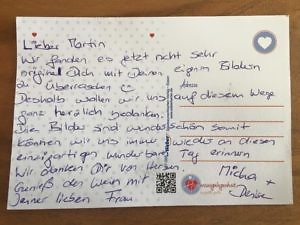 Lieber Martin
Wir fanden es jetzt nicht sehr
originell Dich mit Deinen eigenen Bildern
zu Überraschen
Deshalb wollen wir uns auf diesem Wege
ganz herzlich bedanken.
Die Bilder sind wunderschön somit
können wir uns immer wieder an diesen
einzigartigen wunderbaren Tag erinnern
Wir danken Dir von Herzen.
Genieß den Wein mit
Deiner lieben Frau.
Micha +
Denise